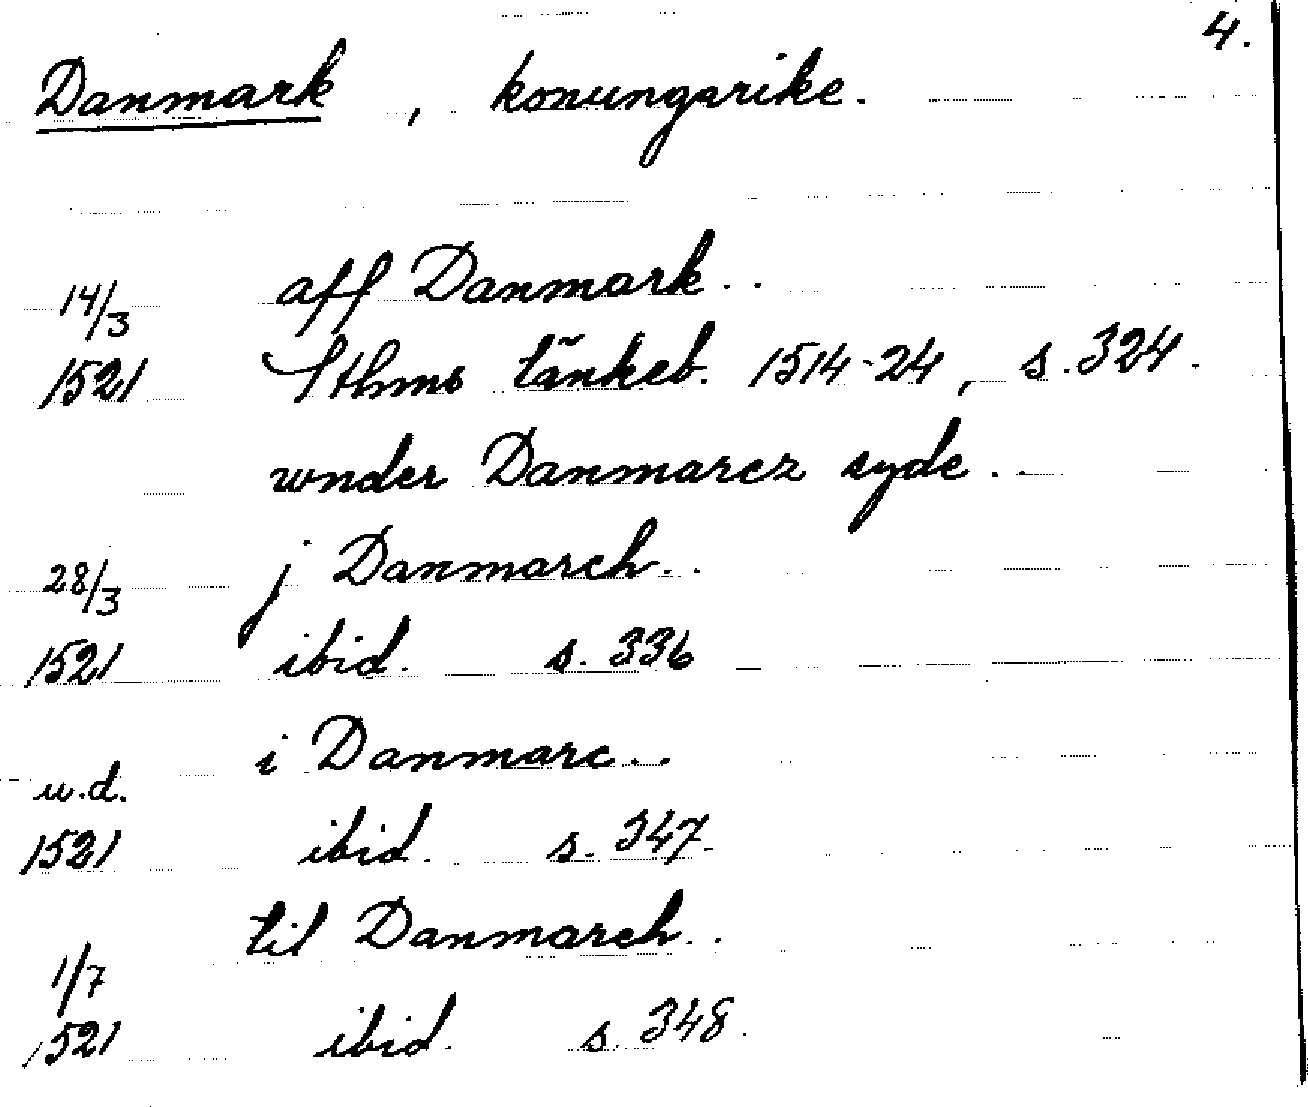 4.
Danmark, konungarike.
aff Danmark..
14/3
1521 Sthms tänkeb. 1514-24, s. 324.
wnder Danmarcz syde..
28/3 j Danmarch..
1521 ibid. s. 336
i Danmarc..
u.d.
1521 ibid. s. 347.
til Danmarch..
1/7
1521 ibid. s. 348.